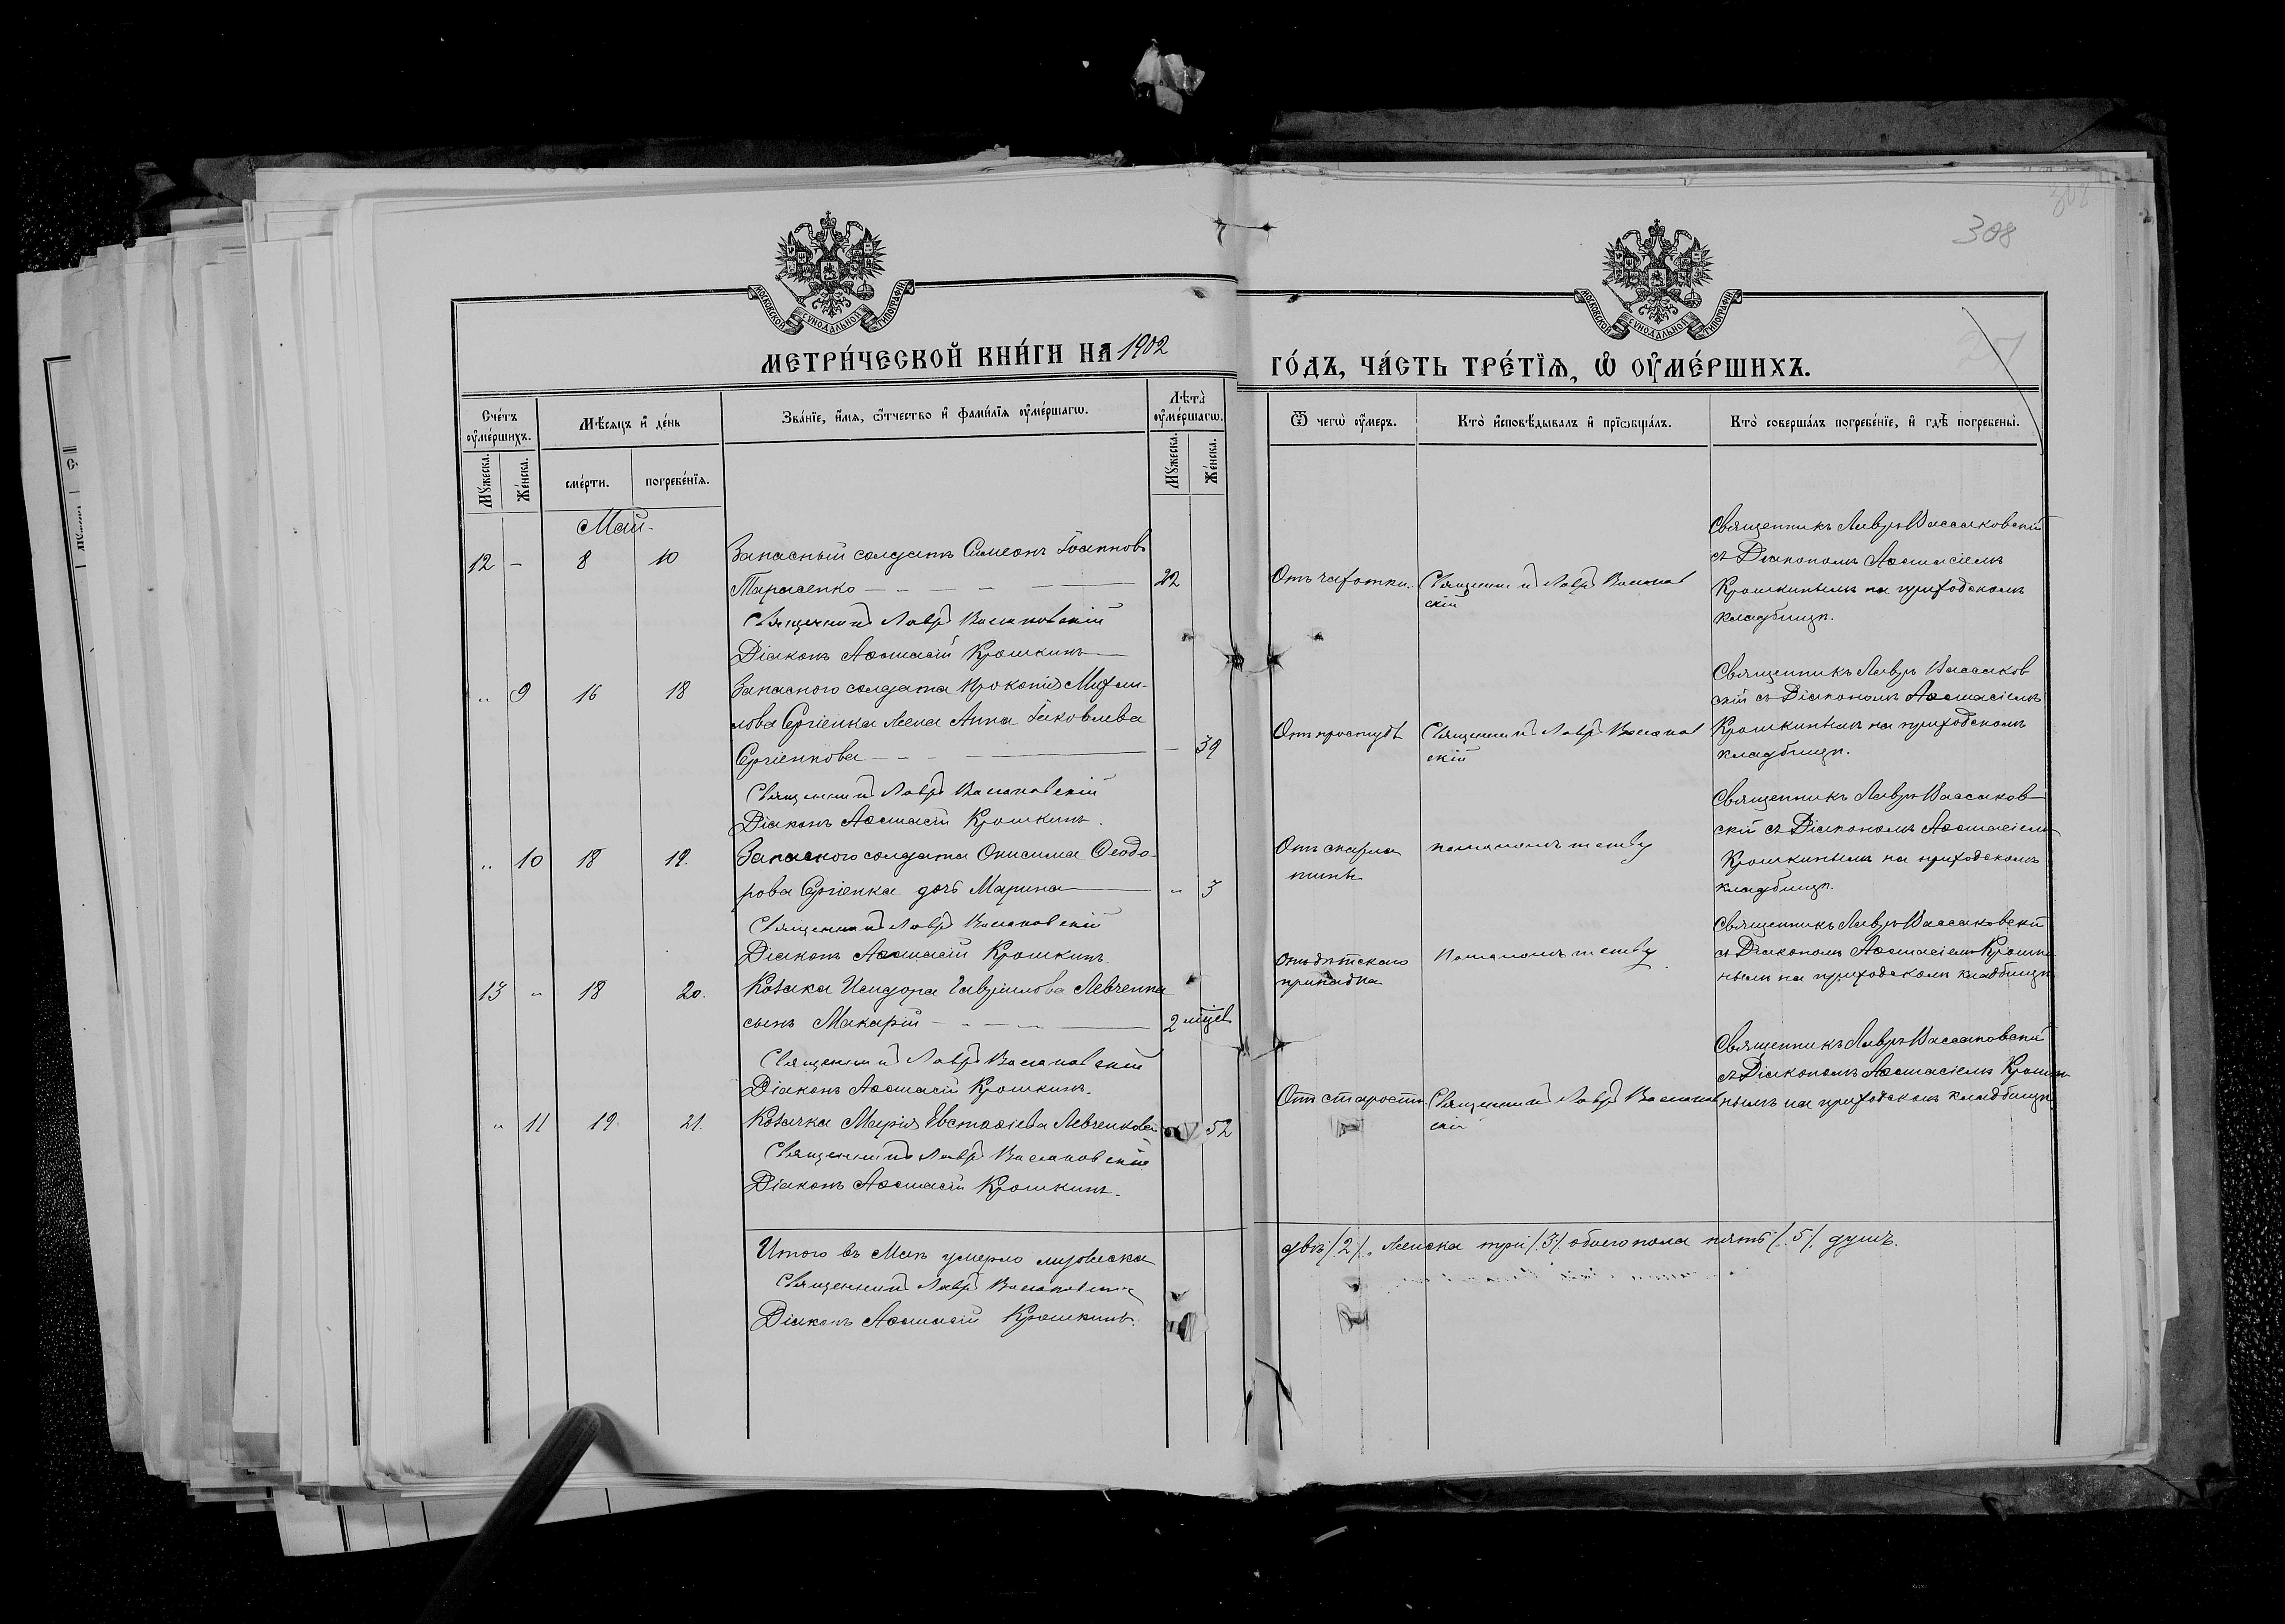 308
МЕТРИ́ЧЕСКОЙ КНИ́ГИ НА 1902
ГО́ДЪ, ЧА́СТЬ ТРЕ́ТЇѦ, Ѡ ОУМЕ́РШИХЪ.
МОСКОВСКОЙ СѴНОДАЛЬНОЙ ТИПОГРАФІИ
МОСКОВСКОЙ СѴНОДАЛЬНОЙ ТИПОГРАФІИ
Сче́тъ оуме́ршихъ.
Мѣсяцъ и де́нь
Зва́нїе, и́мя, ѿтчество и фами́лїя оуме́ршагѡ.
Лѣта̀ оуме́ршагѡ.
Ѿ чегѡ̀ оу́меръ.
Кто̀ и҆сповѣ́дывалъ и прїѡбща́лъ.
Кто̀ соверша́лъ погребе́нїе, и гдѣ̀ погребены̀.
Мꙋжеска.
Же́нска.
сме́рти.
погребе́нїѧ.
Мꙋжеска.
Же́нска.
Май.
12 – 8 10 Запасный солдатъ Симеонъ Іоанновъ
Тарасенко 22
Священникъ Лавръ Вассаковскій
Діаконъ Аѳанасій Крошкинъ
Отъ чахотки.
Священникъ Лавръ Вассаков
скій
Священникъ Лавръ Вассаковскій
съ Діакономъ Аѳанасіемъ
Крошкинымъ на приходскомъ
кладбищѣ.
" 9 16 18 Запасного солдата Прокопія Михаи-
лова Сергіенка жена Анна Іаковлева
Сергіенкова – 39
Священникъ Лавръ Вассаковскій
Діаконъ Аѳанасій Крошкинъ.
Отъ простуды
Священникъ Лавръ Вассаков
скій
Священникъ Лавръ Вассаков
скій съ Діакономъ Аѳанасіемъ
Крошкинымъ на приходскомъ
кладбищѣ.
" 10 18 19. Запасного солдата Онисима Ѳеодо-
рова Сергіенка дочь Марина " 3
Священникъ Лавръ Вассаковскій
Діаконъ Аѳанасій Крошкинъ.
Отъ скарла
тины
по малолѣтству
Священникъ Лавръ Вассаков
скій съ Діакономъ Аѳанасіемъ
Крошкинымъ на приходскомъ
кладбищѣ.
13 " 18 20. Козака Исидора Гавріилова Левченка
сынъ Макарій 2 мѣсяц
Священникъ Лавръ Вассаковскій
Діаконъ Аѳанасій Крошкинъ.
Отъ дѣтскаго
припадка
По малолѣтству
Священникъ Лавръ Вассаковскій
съ Діакономъ Аѳанасіемъ Крошки
нымъ на приходскомъ кладбищѣ
" 11 19 21. Козачка Марія Евстаѳіева Левченкова 52
Священникъ Лавръ Вассаковскій
Діаконъ Аѳанасій Крошкинъ.
Отъ старости.
Священникъ Лавръ Вассаков
скій
Священникъ Лавръ Вассаковскій
съ Діакономъ Аѳанасіемъ Крошки
нымъ на приходскомъ кладбищѣ
Итого въ Маѣ умерло мужеска
двѣ /2/. Женска три /3/ обоего пола пять /5/. душъ.
Священникъ Лавръ Вассаковскій
Діаконъ Аѳанасій Крошкинъ.